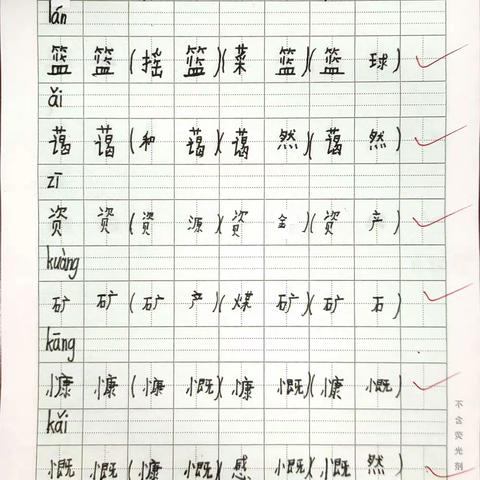 lán
篮 篮 (摇 篮)(菜 篮)(篮 球)
ǎi
蔼 蔼 (和 蔼)(蔼 然)(蔼 然)
zī
资 资 (资 源)(资 金)(资 产)
kuàng
矿 矿 (矿 产)(煤 矿)(矿 石)
kāng
慷 慷 (慷 慨)(慷 慨)(慷 慨)
kǎi
慨 慨 (慷 慨)(感 慨)(慨 然)
不含荧光剂